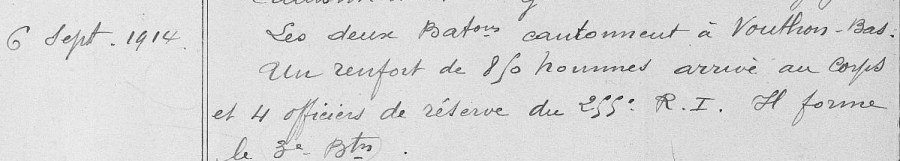 6 Sept. 1914. Les deux Batons cantonnent à Vouthon-Bas.
Un renfort de 850 hommes arrive au Corps
et 4 officiers de réserve du 255e R.I. Il forme
le 3e Btn.